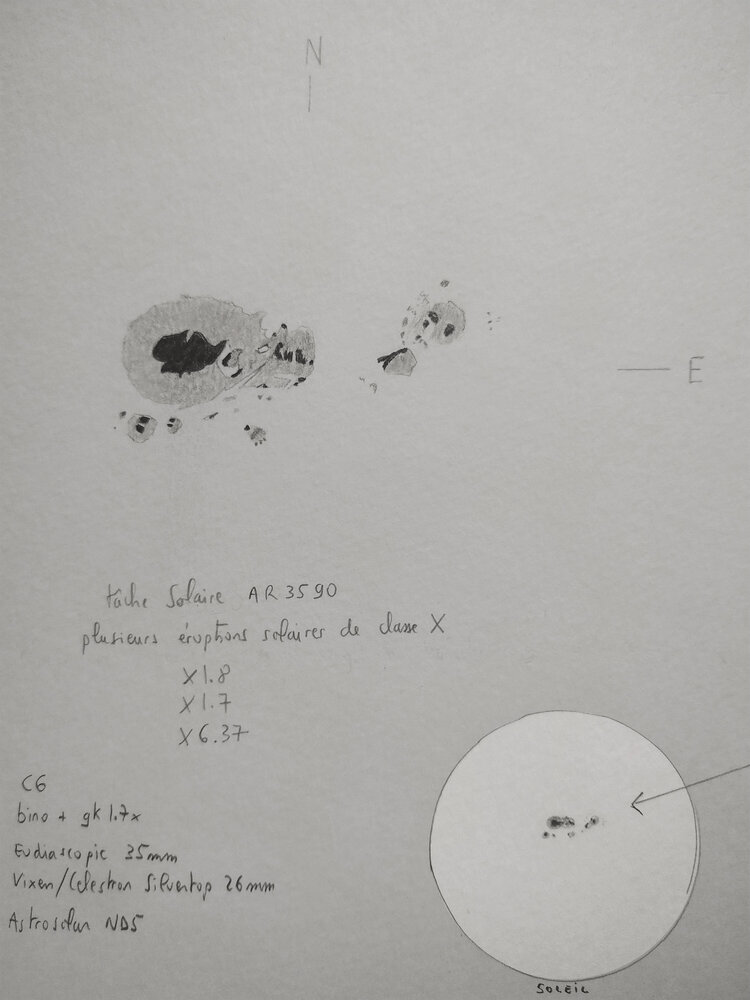 N
E
tâche Solaire AR3590
plusieurs éruptions solaires de classe X
X1.8
X1.7
X6.37
C6
bino + gk 1.7x
Eudiascopic 35mm
Vixen/Celestron Silvertop 26mm
Astrosolar ND5
SOLEIL